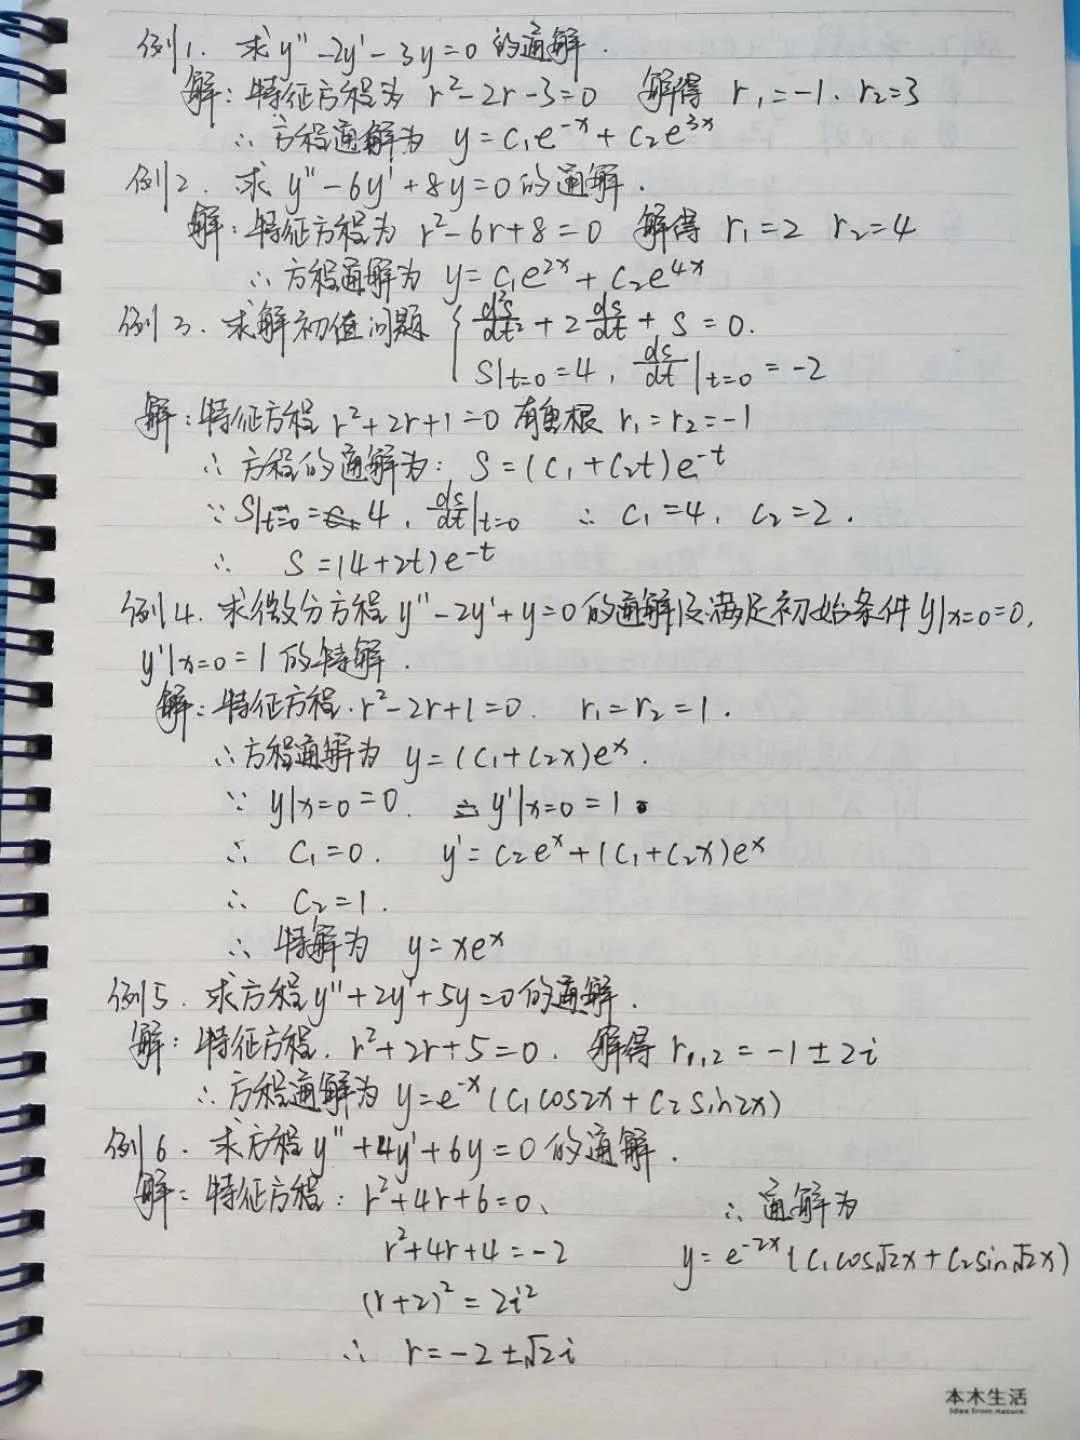 例1. 求y''-2y'-3y=0 的通解.
解: 特征方程为 r²-2r-3=0 解得 r₁=-1. r₂=3
∴ 方程通解为 y=C₁e⁻ˣ+C₂e³ˣ
例2. 求 y''-6y'+8y=0的通解.
解: 特征方程为 r²-6r+8=0 解得 r₁=2 r₂=4
∴ 方程通解为 y=C₁e²ˣ+C₂e⁴ˣ
例3. 求解初值问题 { d²s/dt²+2ds/dt+S=0.
S|t=0=4, ds/dt|t=0=-2
解: 特征方程 r²+2r+1=0 有重根 r₁=r₂=-1
∴ 方程的通解为: S=(C₁+C₂t)e⁻ᵗ
∵ S|t=0=4, ds/dt|t=0 ∴ C₁=4, C₂=2.
∴ S=(4+2t)e⁻ᵗ
例4. 求微分方程y''-2y'+y=0的通解及满足初始条件y|x=0=0,
y'|x=0=1的特解.
解: 特征方程.r²-2r+1=0. r₁=r₂=1.
∴方程通解为 y=(C₁+C₂x)eˣ.
∵ y|x=0=0. y'|x=0=1.
∴ C₁=0. y'=C₂eˣ+(C₁+C₂x)eˣ
∴ C₂=1.
∴ 特解为 y=xeˣ
例5. 求方程y''+2y'+5y=0的通解.
解: 特征方程. r²+2r+5=0. 解得 r₁,₂=-1±2i
∴方程通解为 y=e⁻ˣ(C₁cos2x+C₂sin2x)
例6. 求方程y''+4y'+6y=0的通解.
解: 特征方程: r²+4r+6=0、
r²+4r+4=-2
(r+2)²=2i²
∴ r=-2±√2i
∴ 通解为
y=e⁻²ˣ(C₁cos√2x+C₂sin√2x)
本木生活
Idea from nature.